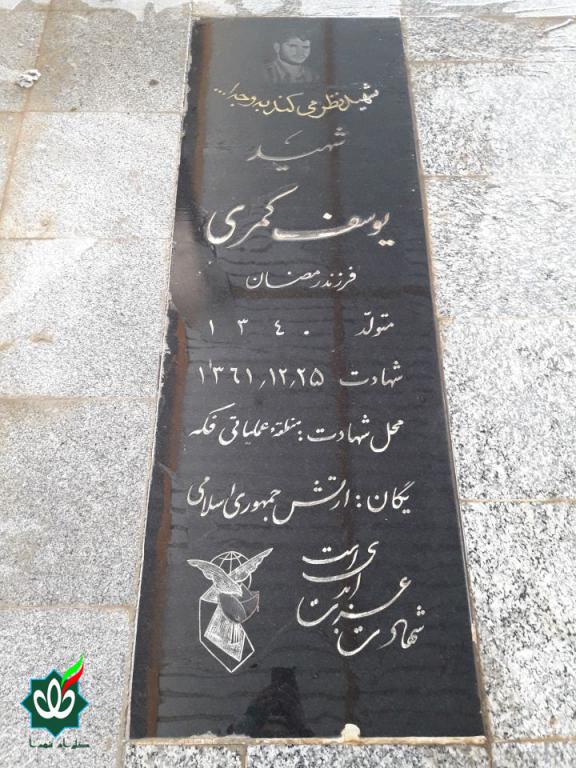 شهید نظر می کند به وجه ا...
شهید
یوسف گمری
فرزند رمضان
متولد ۱۳٤۰
شهادت ۱۳٦۱,۱۲,۲۵
محل شهادت: منطقه عملیاتی فکه
یگان: ارتش جمهوری اسلامی
شهادت عزت ابدی است